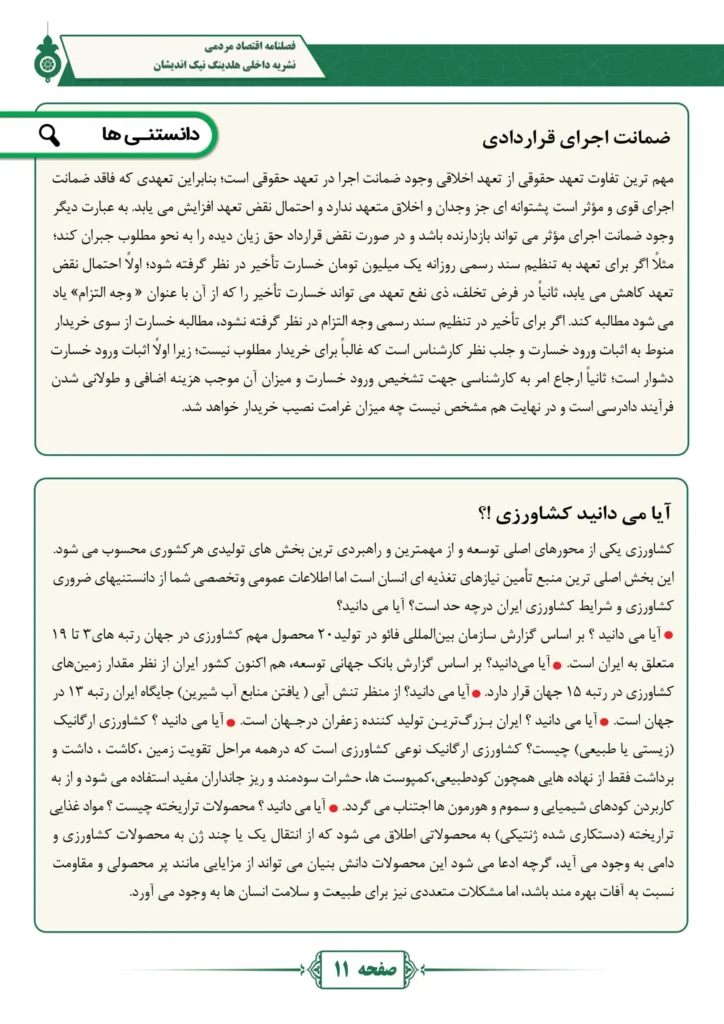 فصلنامه اقتصاد مردمی
نشریه داخلی هلدینگ نیک اندیشان
دانستنـی ها
ضمانت اجرای قراردادی
مهم ترین تفاوت تعهد حقوقی از تعهد اخلاقی وجود ضمانت اجرا در تعهد حقوقی است؛ بنابراین تعهدی که فاقد ضمانت
اجرای قوی و مؤثر است پشتوانه ای جز وجدان و اخلاق متعهد ندارد و احتمال نقض تعهد افزایش می یابد. به عبارت دیگر
وجود ضمانت اجرای مؤثر می تواند بازدارنده باشد و در صورت نقض قرارداد حق زیان دیده را به نحو مطلوب جبران کند؛
مثلاً اگر برای تعهد به تنظیم سند رسمی روزانه یک میلیون تومان خسارت تأخیر در نظر گرفته شود؛ اولاً احتمال نقض
تعهد کاهش می یابد، ثانیاً در فرض تخلف، ذی نفع تعهد می تواند خسارت تأخیر را که از آن با عنوان « وجه التزام» یاد
می شود مطالبه کند. اگر برای تأخیر در تنظیم سند رسمی وجه التزام در نظر گرفته نشود، مطالبه خسارت از سوی خریدار
منوط به اثبات ورود خسارت و جلب نظر کارشناس است که غالباً برای خریدار مطلوب نیست؛ زیرا اولاً اثبات ورود خسارت
دشوار است؛ ثانیاً ارجاع امر به کارشناسی جهت تشخیص ورود خسارت و میزان آن موجب هزینه اضافی و طولانی شدن
فرآیند دادرسی است و در نهایت هم مشخص نیست چه میزان غرامت نصیب خریدار خواهد شد.
آیا می دانید کشاورزی !؟
کشاورزی یکی از محورهای اصلی توسعه و از مهمترین و راهبردی ترین بخش های تولیدی هرکشوری محسوب می شود.
این بخش اصلی ترین منبع تأمین نیازهای تغذیه ای انسان است اما اطلاعات عمومی وتخصصی شما از دانستنیهای ضروری
کشاورزی و شرایط کشاورزی ایران درچه حد است؟ آیا می دانید؟
● آیا می دانید ؟ بر اساس گزارش سازمان بین‌المللی فائو در تولید۲۰ محصول مهم کشاورزی در جهان رتبه های۳ تا ۱۹
متعلق به ایران است. ● آیا می‌دانید؟ بر اساس گزارش بانک جهانی توسعه، هم اکنون کشور ایران از نظر مقدار زمین‌های
کشاورزی در رتبه ۱۵ جهان قرار دارد. ● آیا می دانید؟ از منظر تنش آبی ( یافتن منابع آب شیرین) جایگاه ایران رتبه ۱۳ در
جهان است. ● آیا می دانید ؟ ایران بـزرگ‌تریـن تولید کننده زعفران درجـهان است. ● آیا می دانید ؟ کشاورزی ارگانیک
(زیستی یا طبیعی) چیست؟ کشاورزی ارگانیک نوعی کشاورزی است که درهمه مراحل تقویت زمین ،کاشت ، داشت و
برداشت فقط از نهاده هایی همچون کودطبیعی،کمپوست ها، حشرات سودمند و ریز جانداران مفید استفاده می شود و از به
کاربردن کودهای شیمیایی و سموم و هورمون ها اجتناب می گردد. ● آیا می دانید ؟ محصولات تراریخته چیست ؟ مواد غذایی
تراریخته (دستکاری شده ژنتیکی) به محصولاتی اطلاق می شود که از انتقال یک یا چند ژن به محصولات کشاورزی و
دامی به وجود می آید، گرچه ادعا می شود این محصولات دانش بنیان می تواند از مزایایی مانند پر محصولی و مقاومت
نسبت به آفات بهره مند باشد، اما مشکلات متعددی نیز برای طبیعت و سلامت انسان ها به وجود می آورد.
صفحه ۱۱